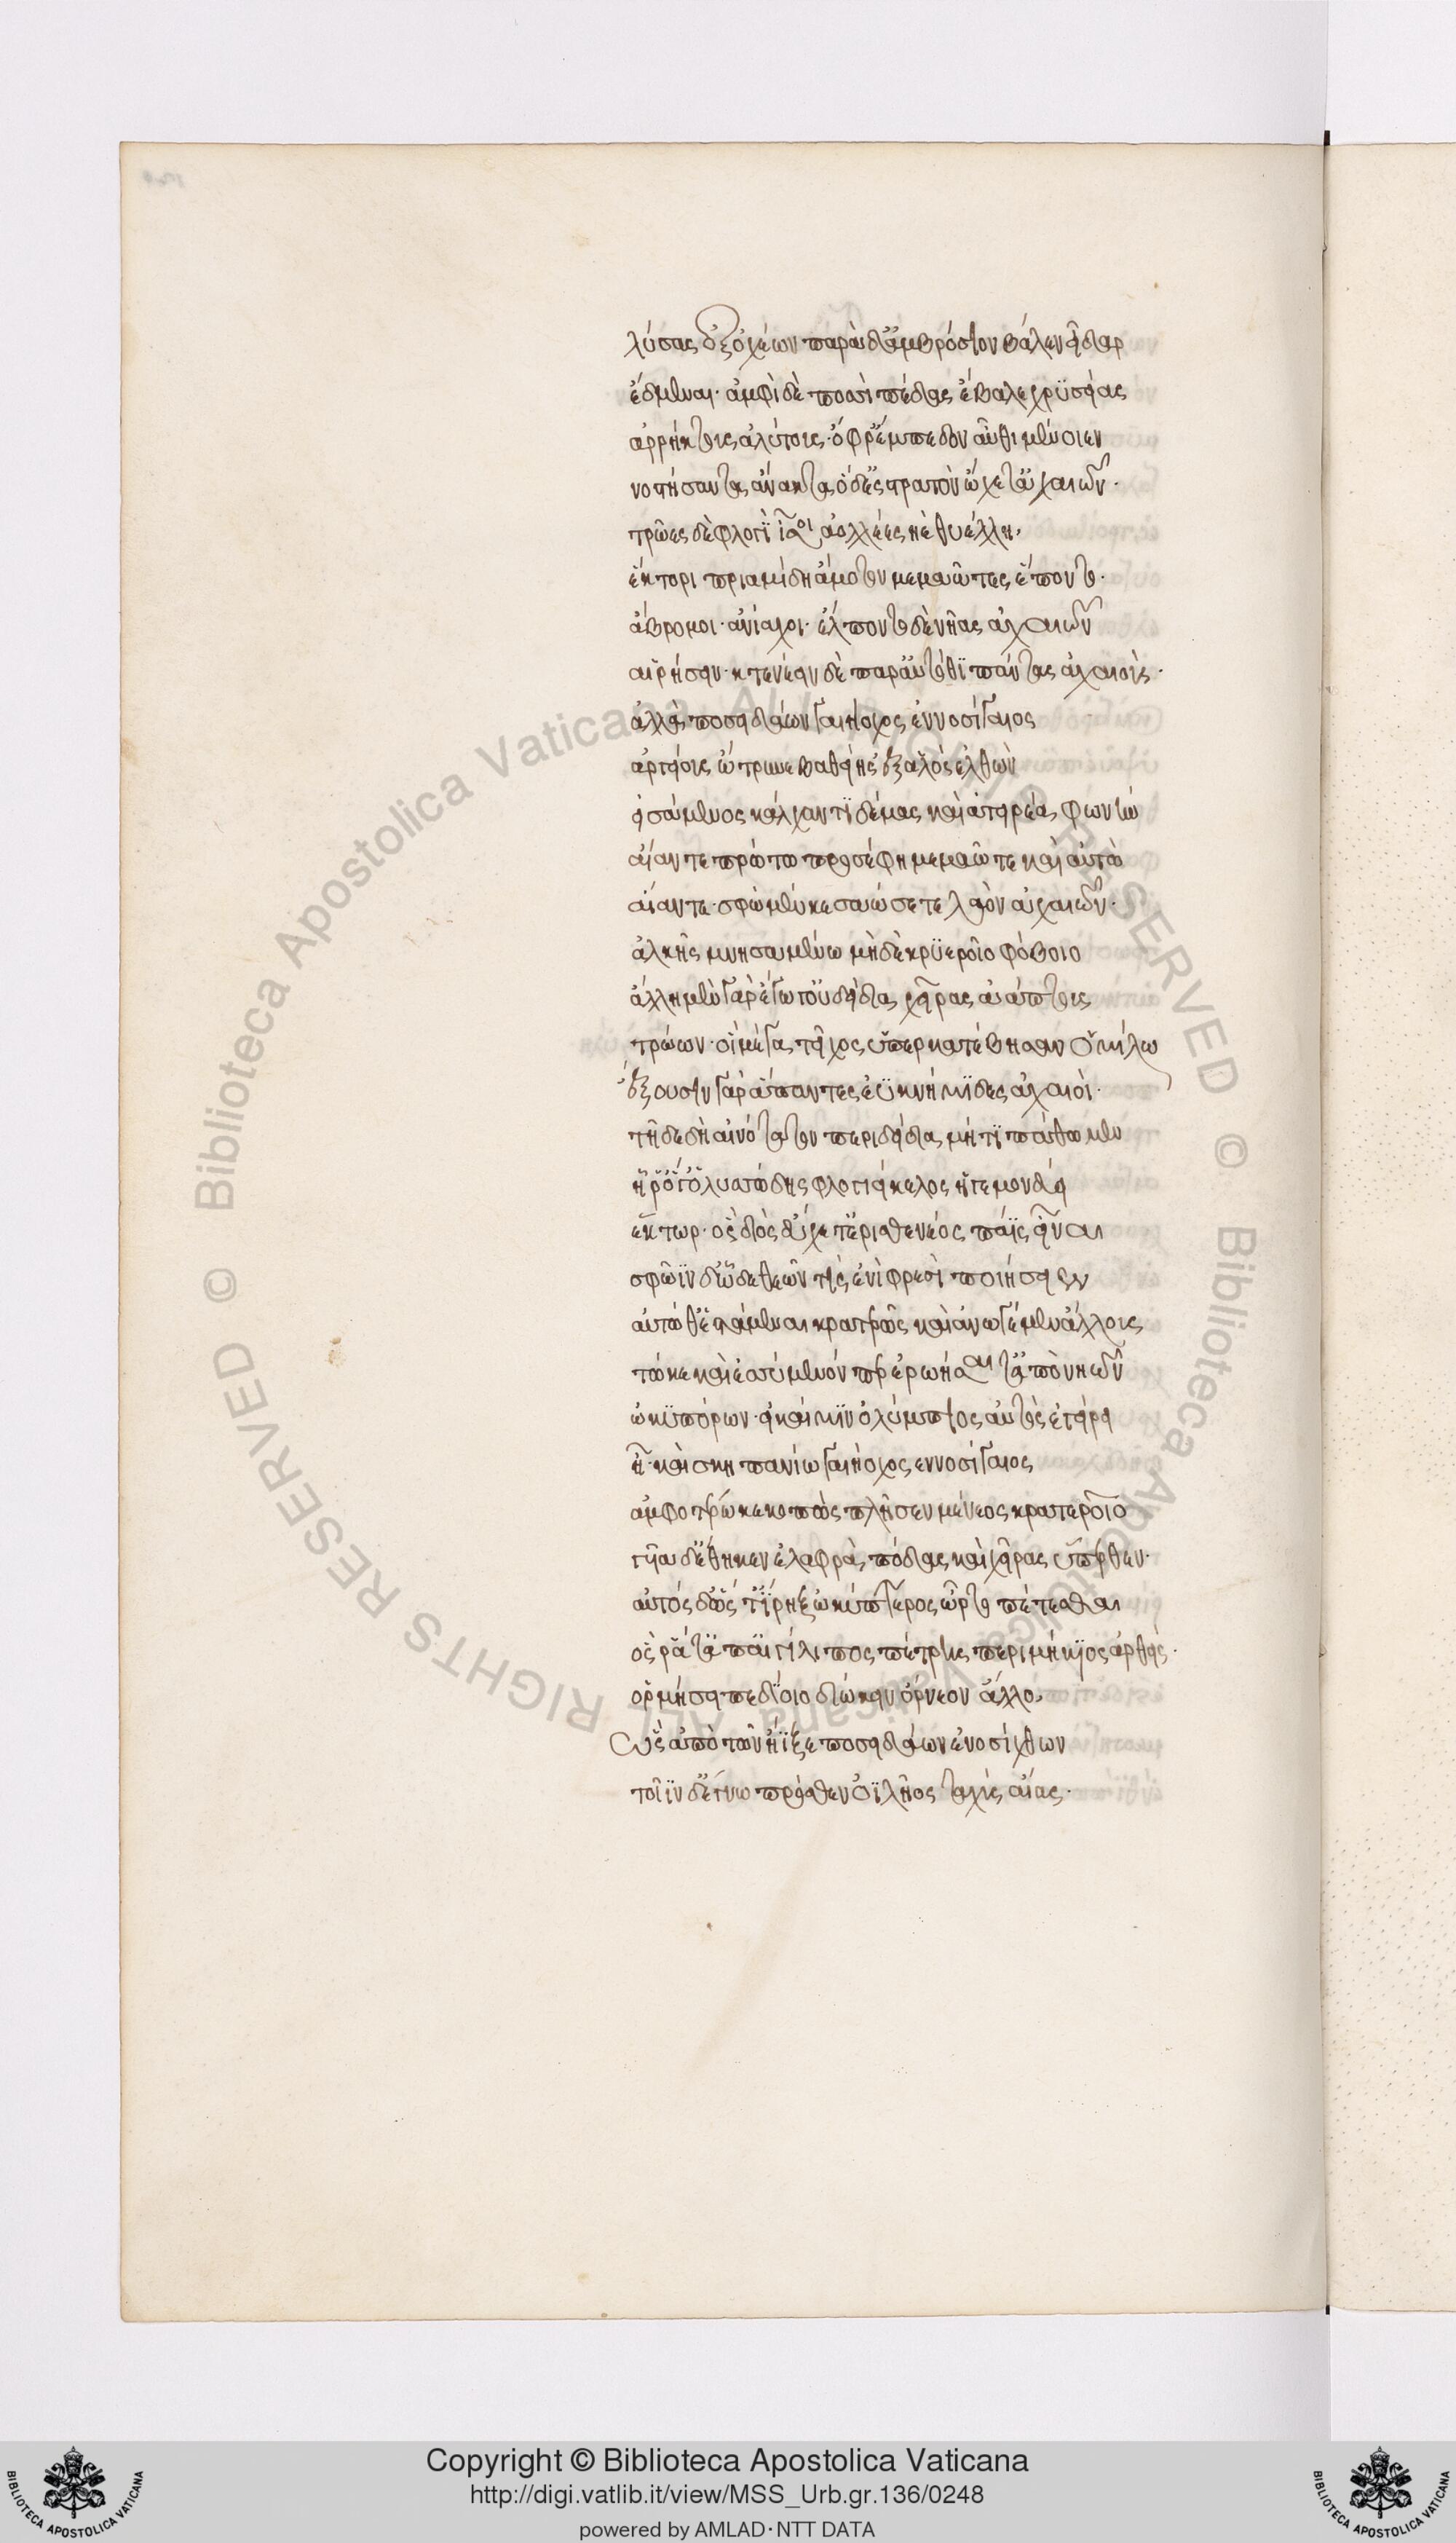 λύσας ἐξ ὀχέων παρὰ δ' ἀμβρόσιον βάλεν εἶδαρ
ἔδμεναι· ἀμφὶ δὲ ποσσὶ πέδας ἔβαλε χρυσείας
ἀρρήκτους ἀλύτους· ὄφρ' ἔμπεδον αὖθι μένοιεν
νοστήσαντα ἄνακτα ὁ δ' ἐς στρατὸν ᾤχετ' ἀχαιῶν·
τρῶες δὲ φλογὶ ἶσοι ἀολλέες ἠὲ θυέλλη,
ἕκτορι πριαμίδη ἄμοτον μεμαῶτες ἕποντο·
ἄβρομοι· ἀυίαχοι· ἔλποντο δὲ νῆας ἀχαιῶν
αἱρήσειν· κτενέειν δὲ παρ' αὐτόθι πάντας ἀχαιούς·
ἀλλὰ ποσειδάων γαιήοχος ἐννοσίγαιος
ἀργείους ὤτρυνε βαθείης ἐξ ἁλὸς ἐλθὼν
εἰσάμενος κάλχαντι δέμας καὶ ἀτειρέα φωνήν
αἴαντε πρώτω προσέφη μεμαῶτε καὶ αὐτὼ
αἴαντε· σφὼ μέν κε σαώσετε λαὸν ἀχαιῶν·
ἀλκῆς μνησαμένω μὴ δὲ κρυεροῖο φόβοιο
ἄλλη μὲν γὰρ ἔγωγ' οὐ δείδια χεῖρας ἀάπτους
τρώων· οἳ μέγα τεῖχος ὑπερκατέβησαν ὁμίλω
ἕξουσιν γὰρ ἅπαντες ἐϋκνήμιδες ἀχαιοί·
τῆ δὲ δὴ αἰνότατον περιδείδια μή τι πάθωμεν
ἧ ῥ' ὅγ' ὁ λυσσώδης φλογὶ εἴκελος ἡγεμονεύει
ἕκτωρ· ὃς διὸς εὔχετ' ἐρισθενέος πάϊς εἶναι
σφῶϊν δ' ὧδε θεῶν τὶς ἐνὶ φρεσὶ ποιήσειεν
αὐτώ θ' ἑστάμεναι κρατερῶς καὶ ἀνωγέμεν ἄλλους
τώ κε καὶ ἐσσύμενόν περ ἐρωήσαιτ' ἀπὸ νηῶν
ὠκυπόρων· εἰ καί μιν ὀλύμπιος αὐτὸς ἐγείρει
ἦ· καὶ σκηπανίω γαιήοχος ἐννοσίγαιος
ἀμφοτέρω κεκοπὼς πλῆσεν μένεος κρατεροῖο
γυῖα δ' ἔθηκεν ἐλαφρὰ, πόδας καὶ χεῖρας ὕπερθεν·
αὐτός δ' ὥς τ' ἴρηξ ὠκύπτερος ὦρτο πέτεσθαι
ὅς ῥά τ' ἀπ' αἰγίλιπος πέτρης περιμήκιος ἀρθεὶς·
ὁρμήση πεδίοιο διώκειν ὄρνεον ἄλλο,
ὣς ἀπὸ τῶν ἤϊξε ποσειδάων ἐνοσίχθων
τοῖϊν δ' ἔγνω πρόσθεν ὀϊλῆος ταχὺς αἴας·
Copyright © Biblioteca Apostolica Vaticana
http://digi.vatlib.it/view/MSS_Urb.gr.136/0248
powered by AMLAD·NTT DATA